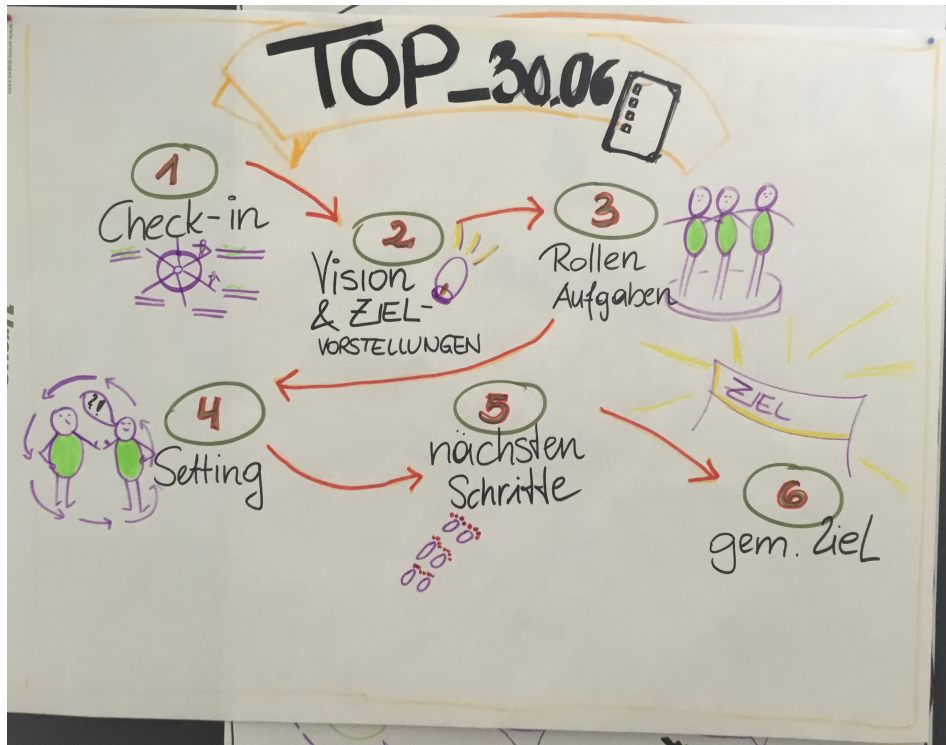 TOP_30.06
1
Check-in
2
Vision
& ZIEL-
VORSTELLUNGEN
3
Rollen
Aufgaben
4
Setting
5
nächsten
Schritte
ZIEL
6
gem. Ziel